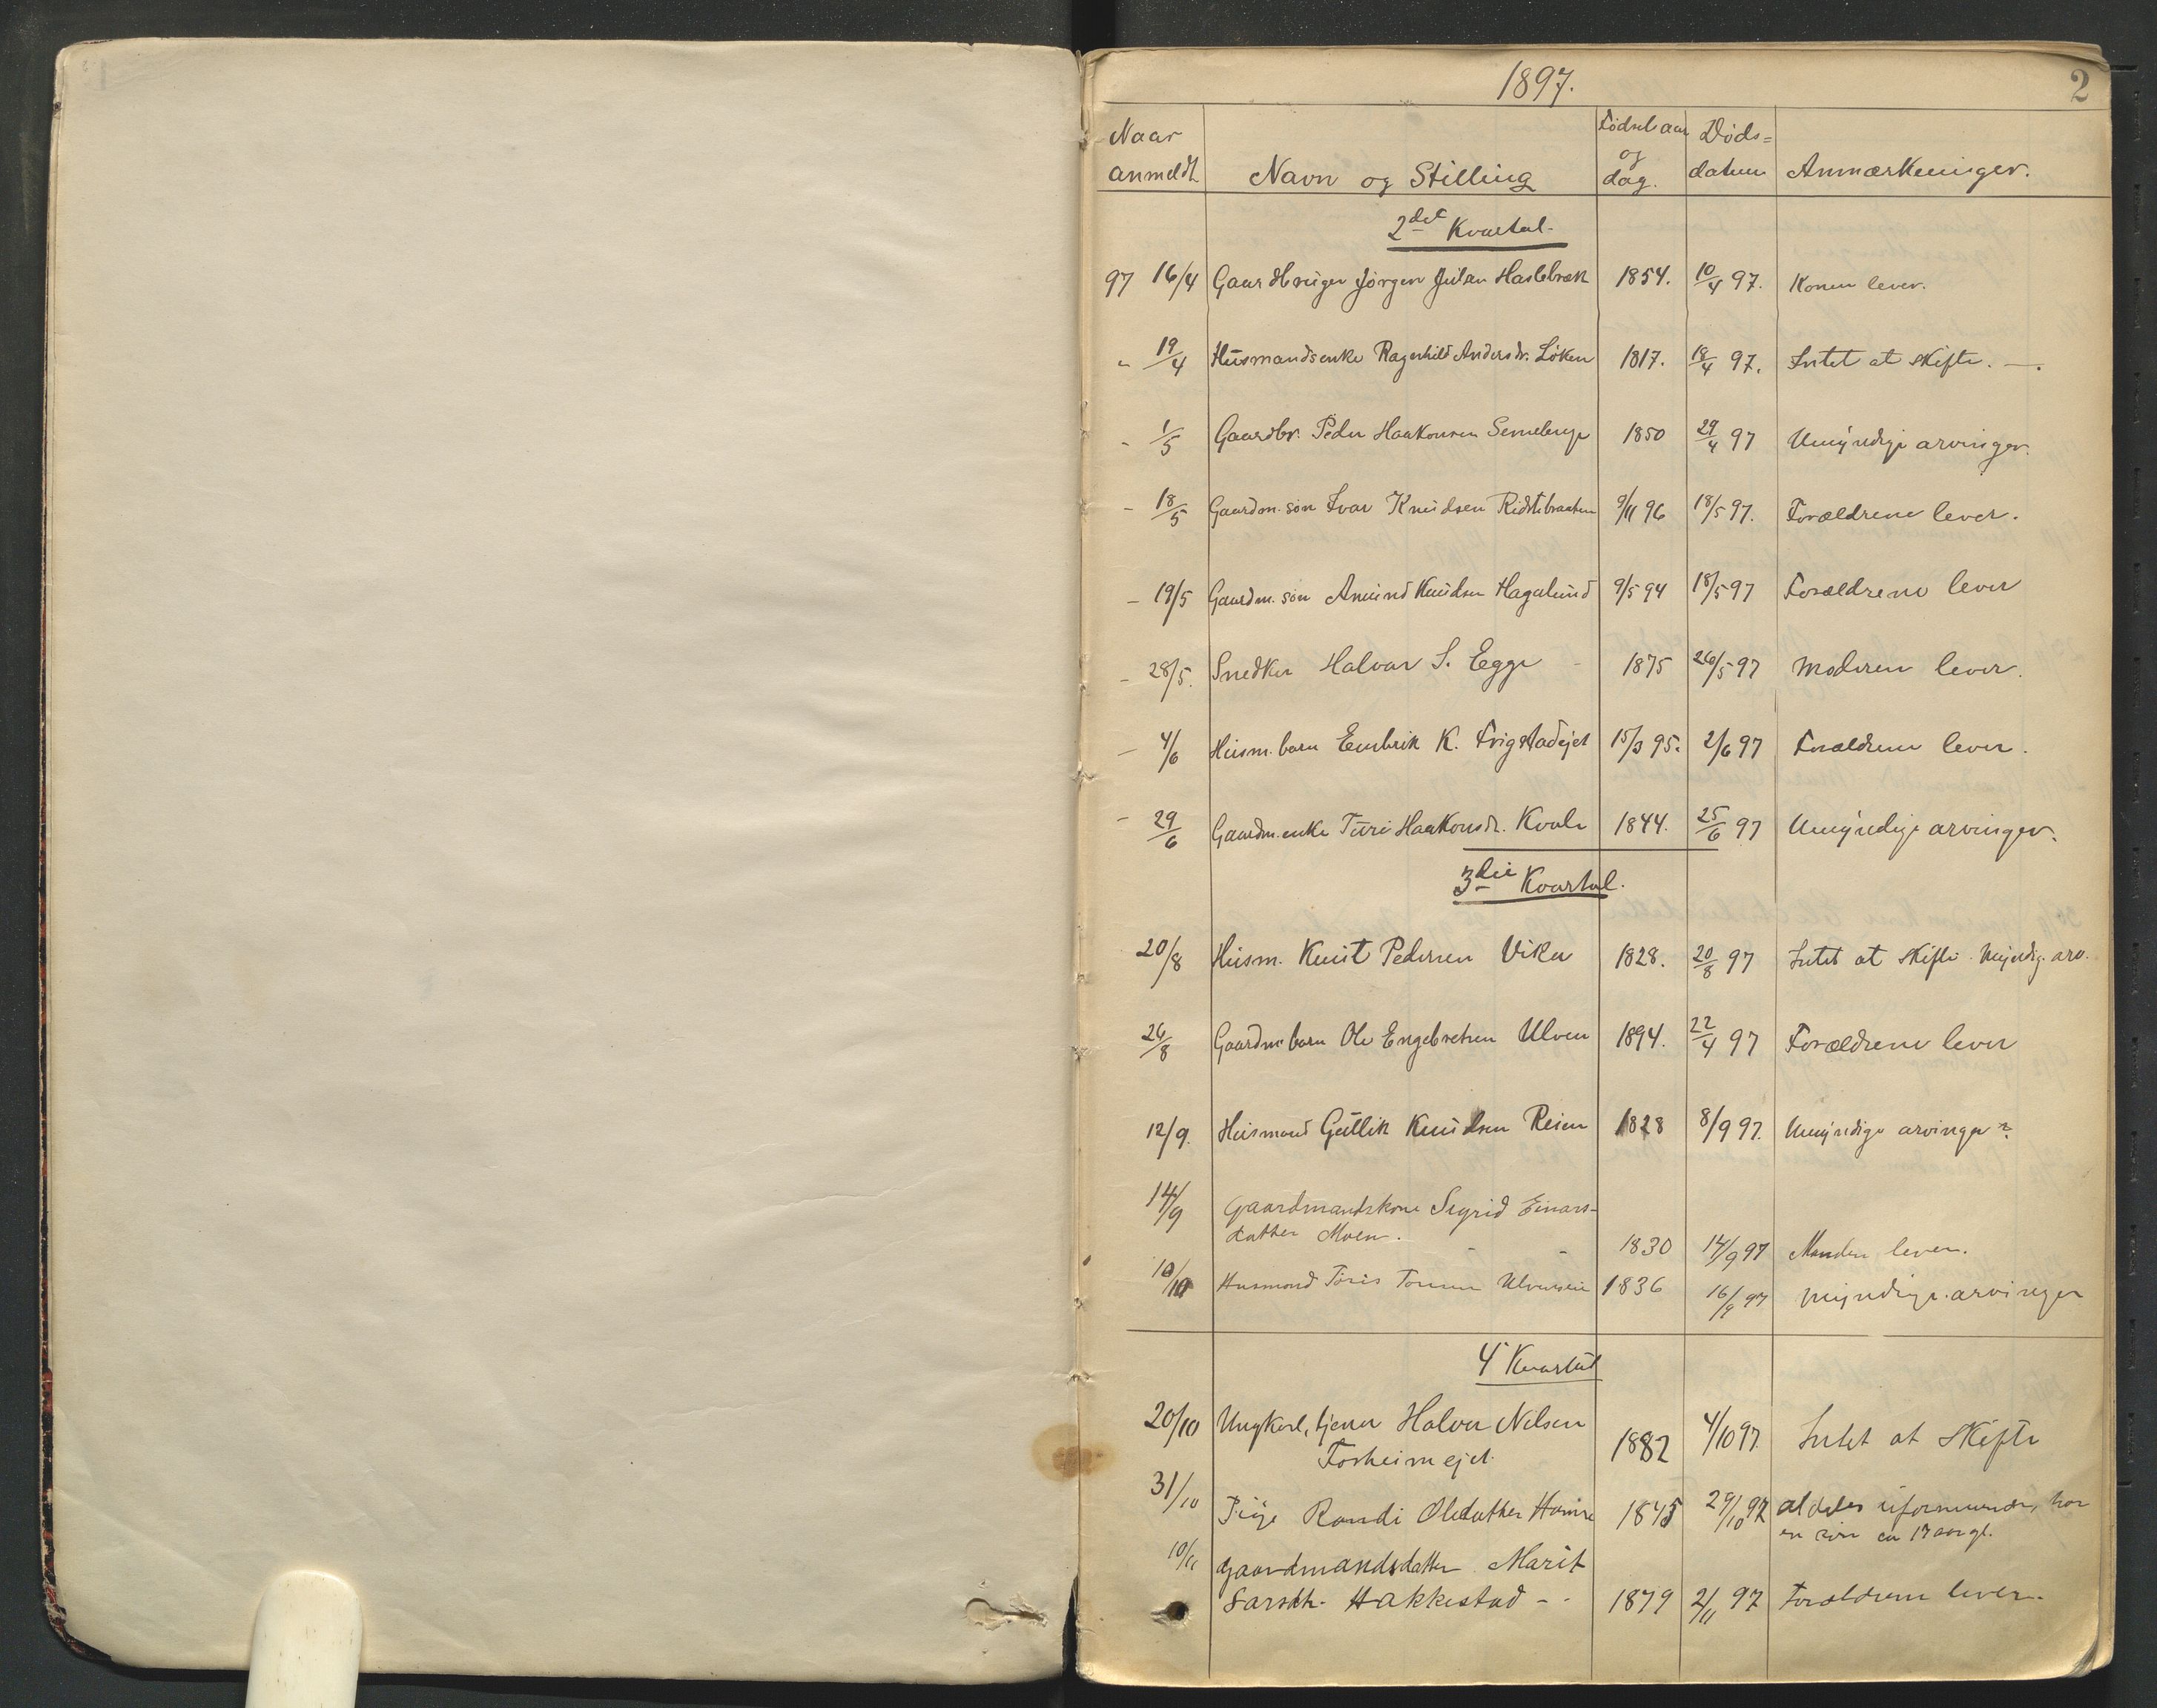 1897.
2
Naar anmeldt Navn og Stilling Fødselsaar og dag. Døds= datum Anmærkninger.
2det Kvartal.
97 16/4 Gaardbruger Jörgen Juлsen Haslebræk 1854. 10/4 97. Konen lever.
" 19/4 Husmandsenke Ragnhild Andersdr. Löken 1817. 18/4 97. Intet at skifte. —.
- 1/5 Gaardbr. Peder Haakonsen 1850 29/4 97 Umÿndige arvinger.
- 18/5 Gaardm. søn Ivar Knudsen 9/11 96 18/5 97. Forældrene lever.
- 19/5 Gaardm. søn Amund Knudsen Hagalund 9/5 94 18/5 97 Forældrene lever
- 28/5. Snedker Halvar S. Egge - 1875 26/5 97 Moderen lever.
- 4/6 Husm. barn Embrik K. Frigstadejet 15/3 95. 2/6 97 Forældrene lever.
- 29/6 Gaardm. enke Turi Haakonsdr. Kvale 1844. 25/6 97 Umÿndige arvinger.
3die Kvartal.
20/8 Husm. Knut Pedersen Viken 1828. 20/8 97 Intet at skifte. Mÿndig. arv.
26/8 Gaardm. barn Ole Engebretsen Ulven 1894. 22/4 97 Forældrene lever
12/9. Husmand Gullik Knudsen Reien 1828 8/9 97. Umÿndige arvinger?
14/9 Gaardmandskone Sigrid Einars-
datter Moen. - - 1830 14/9 97 Manden lever.
10/10 Husmand Töris 1836 16/9 97 Mÿndige arvinger
4 Kvartal
20/10 Ungkarl, tjener Halvor Nilsen
Forheimejet. 1882 4/10 97. Intet at skifte
31/10 Pige Randi Olsdatter 1845 29/10 97 aldeles uformuende, har
en søn ca 17 aar gl.
10/11 Gaardmandsdatter Marit
Larsdtr. Hakkestad - - 1879 2/11 97 Forældrene lever.